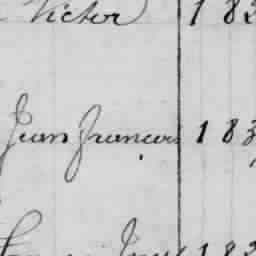 Victor 182
Jean francois 183
182